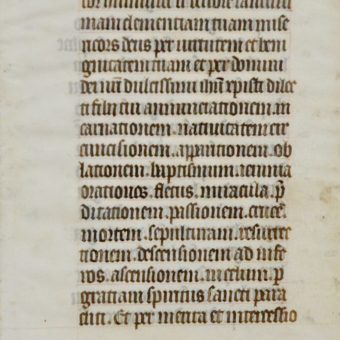 mam clementiam tuam mise
ricors deus per virtutem et beni
gnitatem tuam et per domini
dei nr̄i dulcissimi ihū xpisti dilec
ti filii tui annunciationem .in
carnationem .nativitatem cir
cuncisionem .apparitionem .ob
lationem .baptismum .ieiunia
orationes .fletus .miracula .p̄
dicationem .passionem .crucē.
mortem .sepulturam .resurrec
tionem .descensionem ad infe
ros .ascensionem .in celum .p̲
gratiam spiritus sancti para
cliti. Et per merita et intercessio